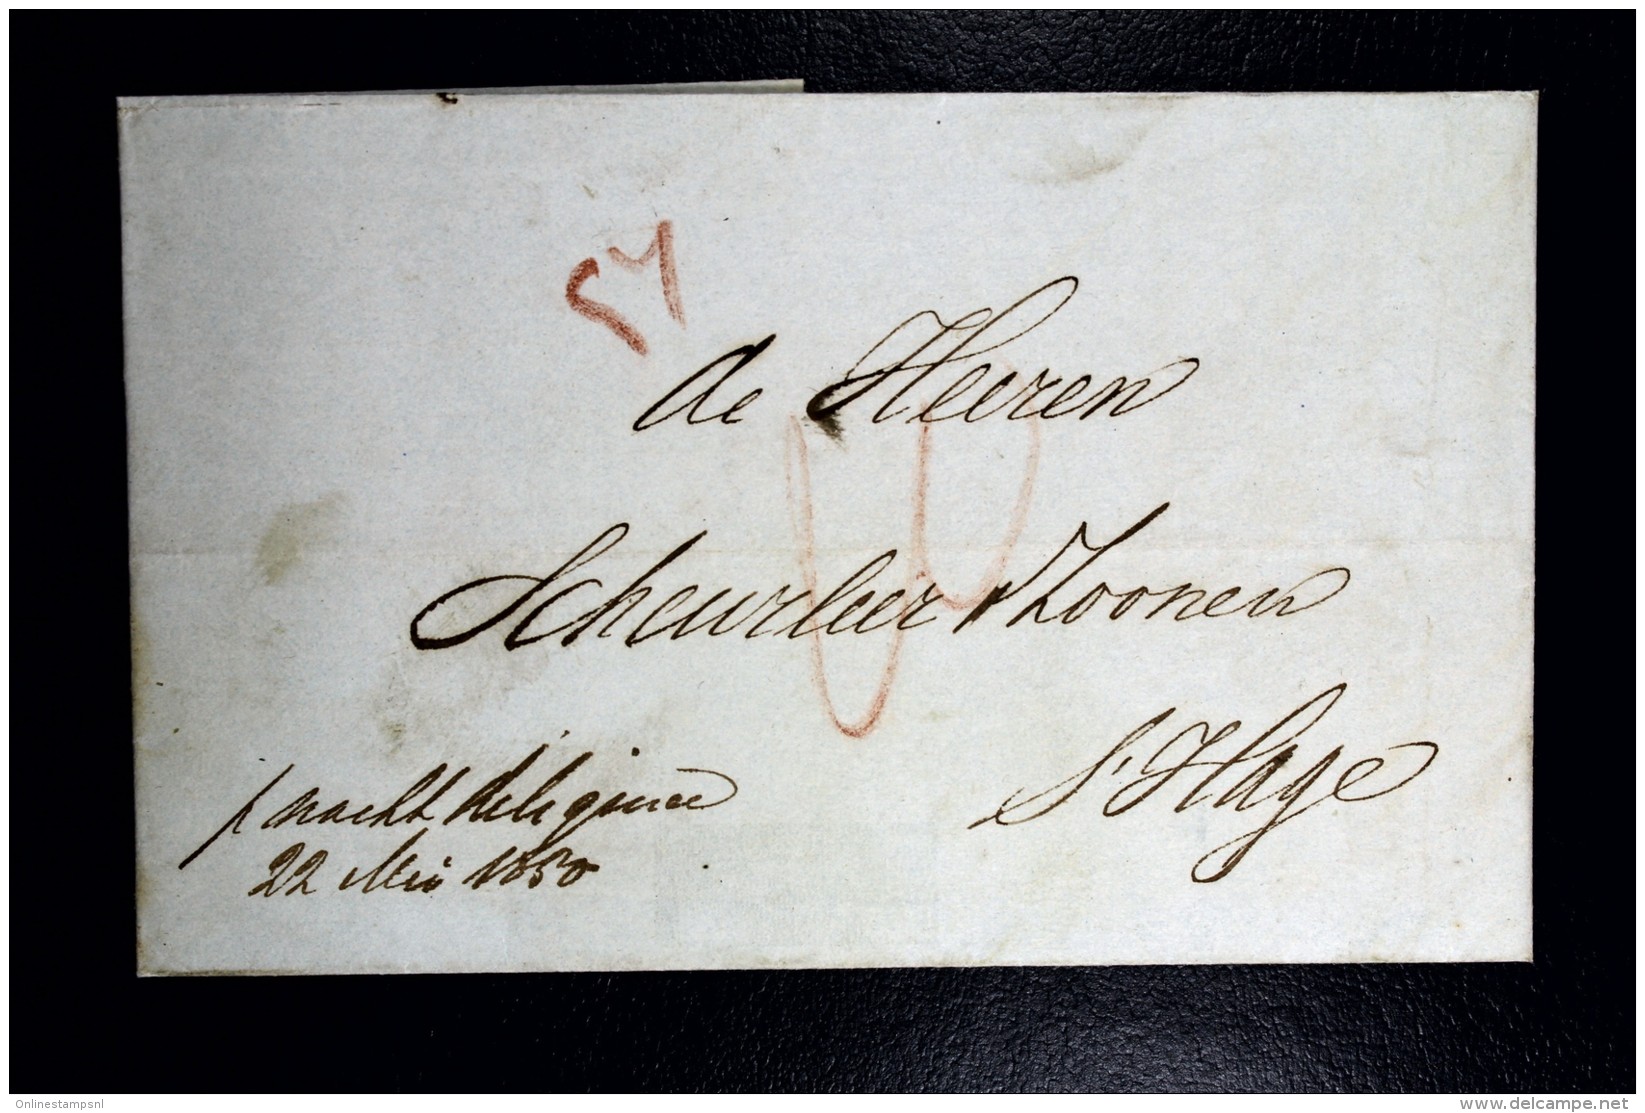 de Heeren
Scheurleer & Zoonen
S'Hage
p nacht diligence
22 Mei 1850
Onlinestampsnl
delcampe.net